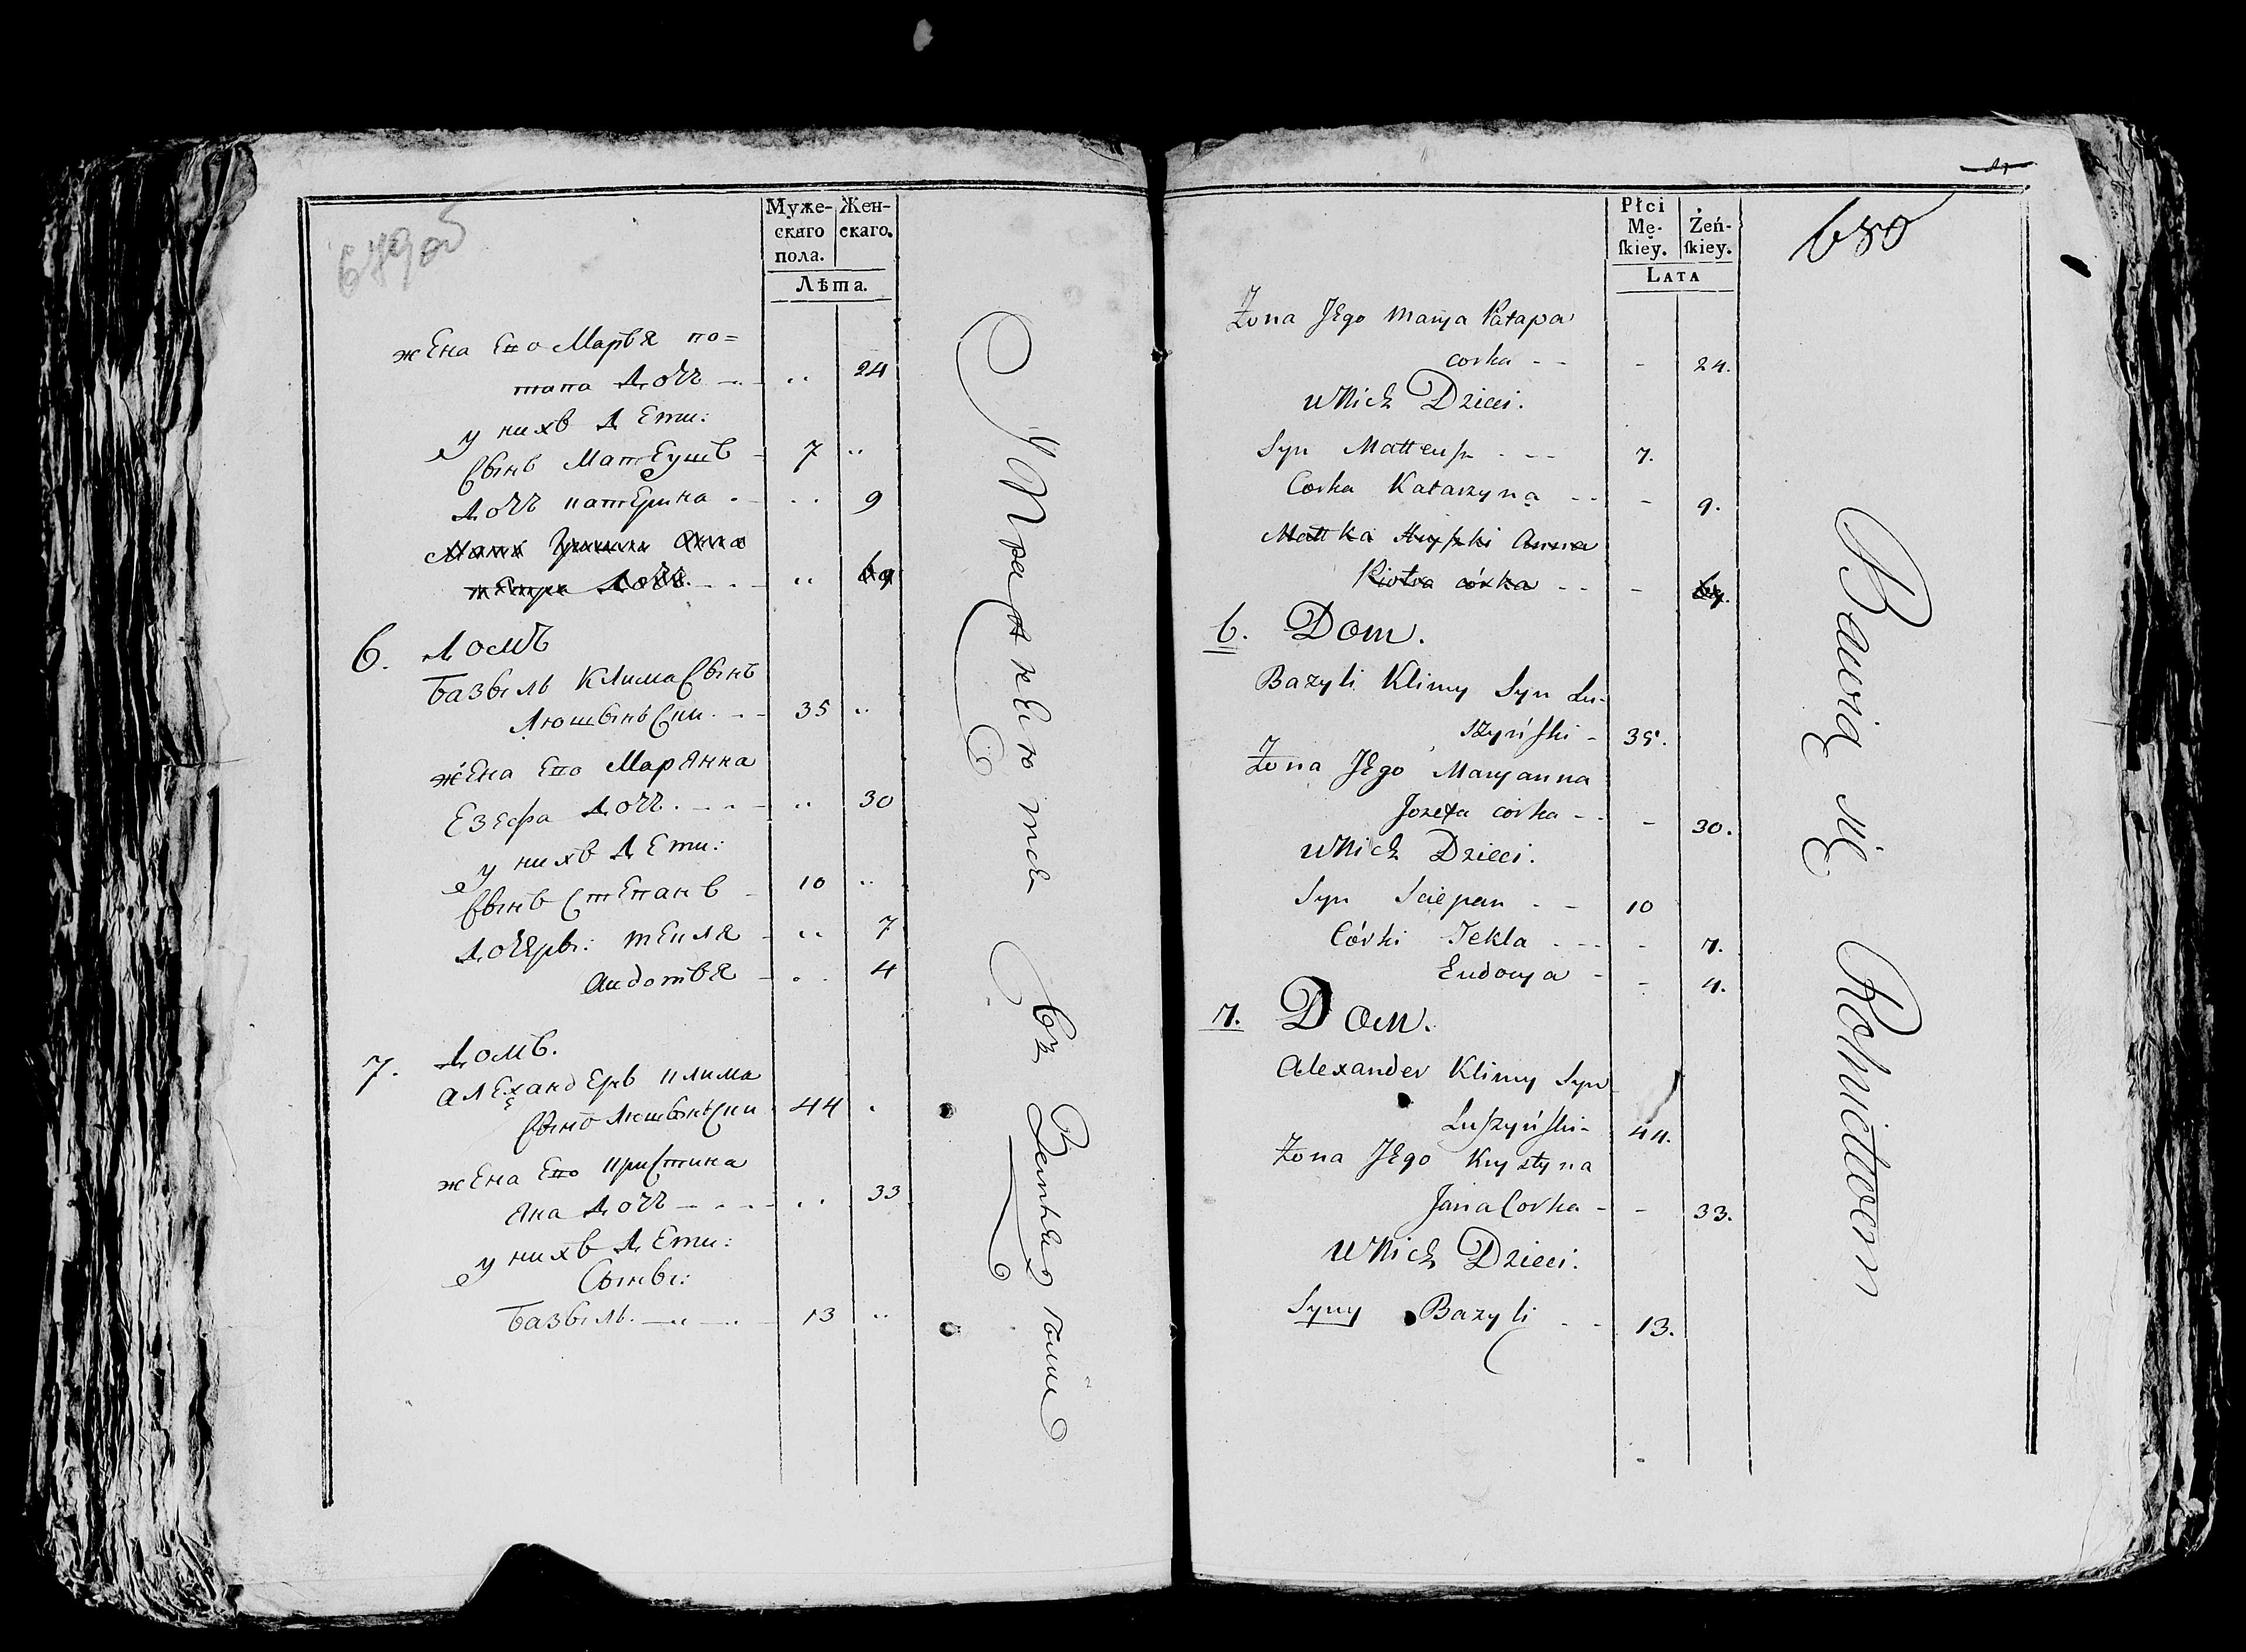 679об
Муже-
скаго
пола.
Жен-
скаго.
Лѣта.
жена его Марья по=
тапа дочь - .. 24
у нихъ дети:
Сынъ Матеушъ - 7 ..
дочь катерина - .. 9
Мать Гришки Анна
петра дочь. - ..
6. домъ
Базыль Клима Сынъ
Люшыньски. - - 35 ..
жена его Марянна
Езефа дочь. - - .. 30
у нихъ дети:
Сынъ Степанъ - 10 ..
дочеры: текля - .. 7
Авдотья - .. 4
7. домъ.
александеръ клима
Сынъ Люшыньски 44 .
жена его кристина
Яна дочь - - - .. 33
у нихъ дети:
Сыны:
Базыль. - - 13 ..
Упражняются Въ Земледелии
Płci
Mę-
skiey.
Żeń-
skiey.
LATA
680
Żona JEgo Marya Patapa
corka - - - 24.
u Nich Dzieci.
Syn Matteusz - - - 7.
Corka Katarzyna - - - 9.
Mattka Hryszki Anna
Piotra córka - - -
6. Dom.
Bazyli Klimy Syn Lu-
szyński - 35.
Żona JEgo Maryanna
Jozefa corka - - - 30.
u Nich Dzieci.
Syn Sciepan - - 10
Córki Tekla - - - 7.
Eudocya - - 4.
7. Dom.
Alexander Klimy Syn
Luszyński - 44.
Żona JEgo Krystyna
Jana Corka - - 33.
u Nich Dzieci.
Syny Bazyli - - 13.
Bawią się Rolnictwem